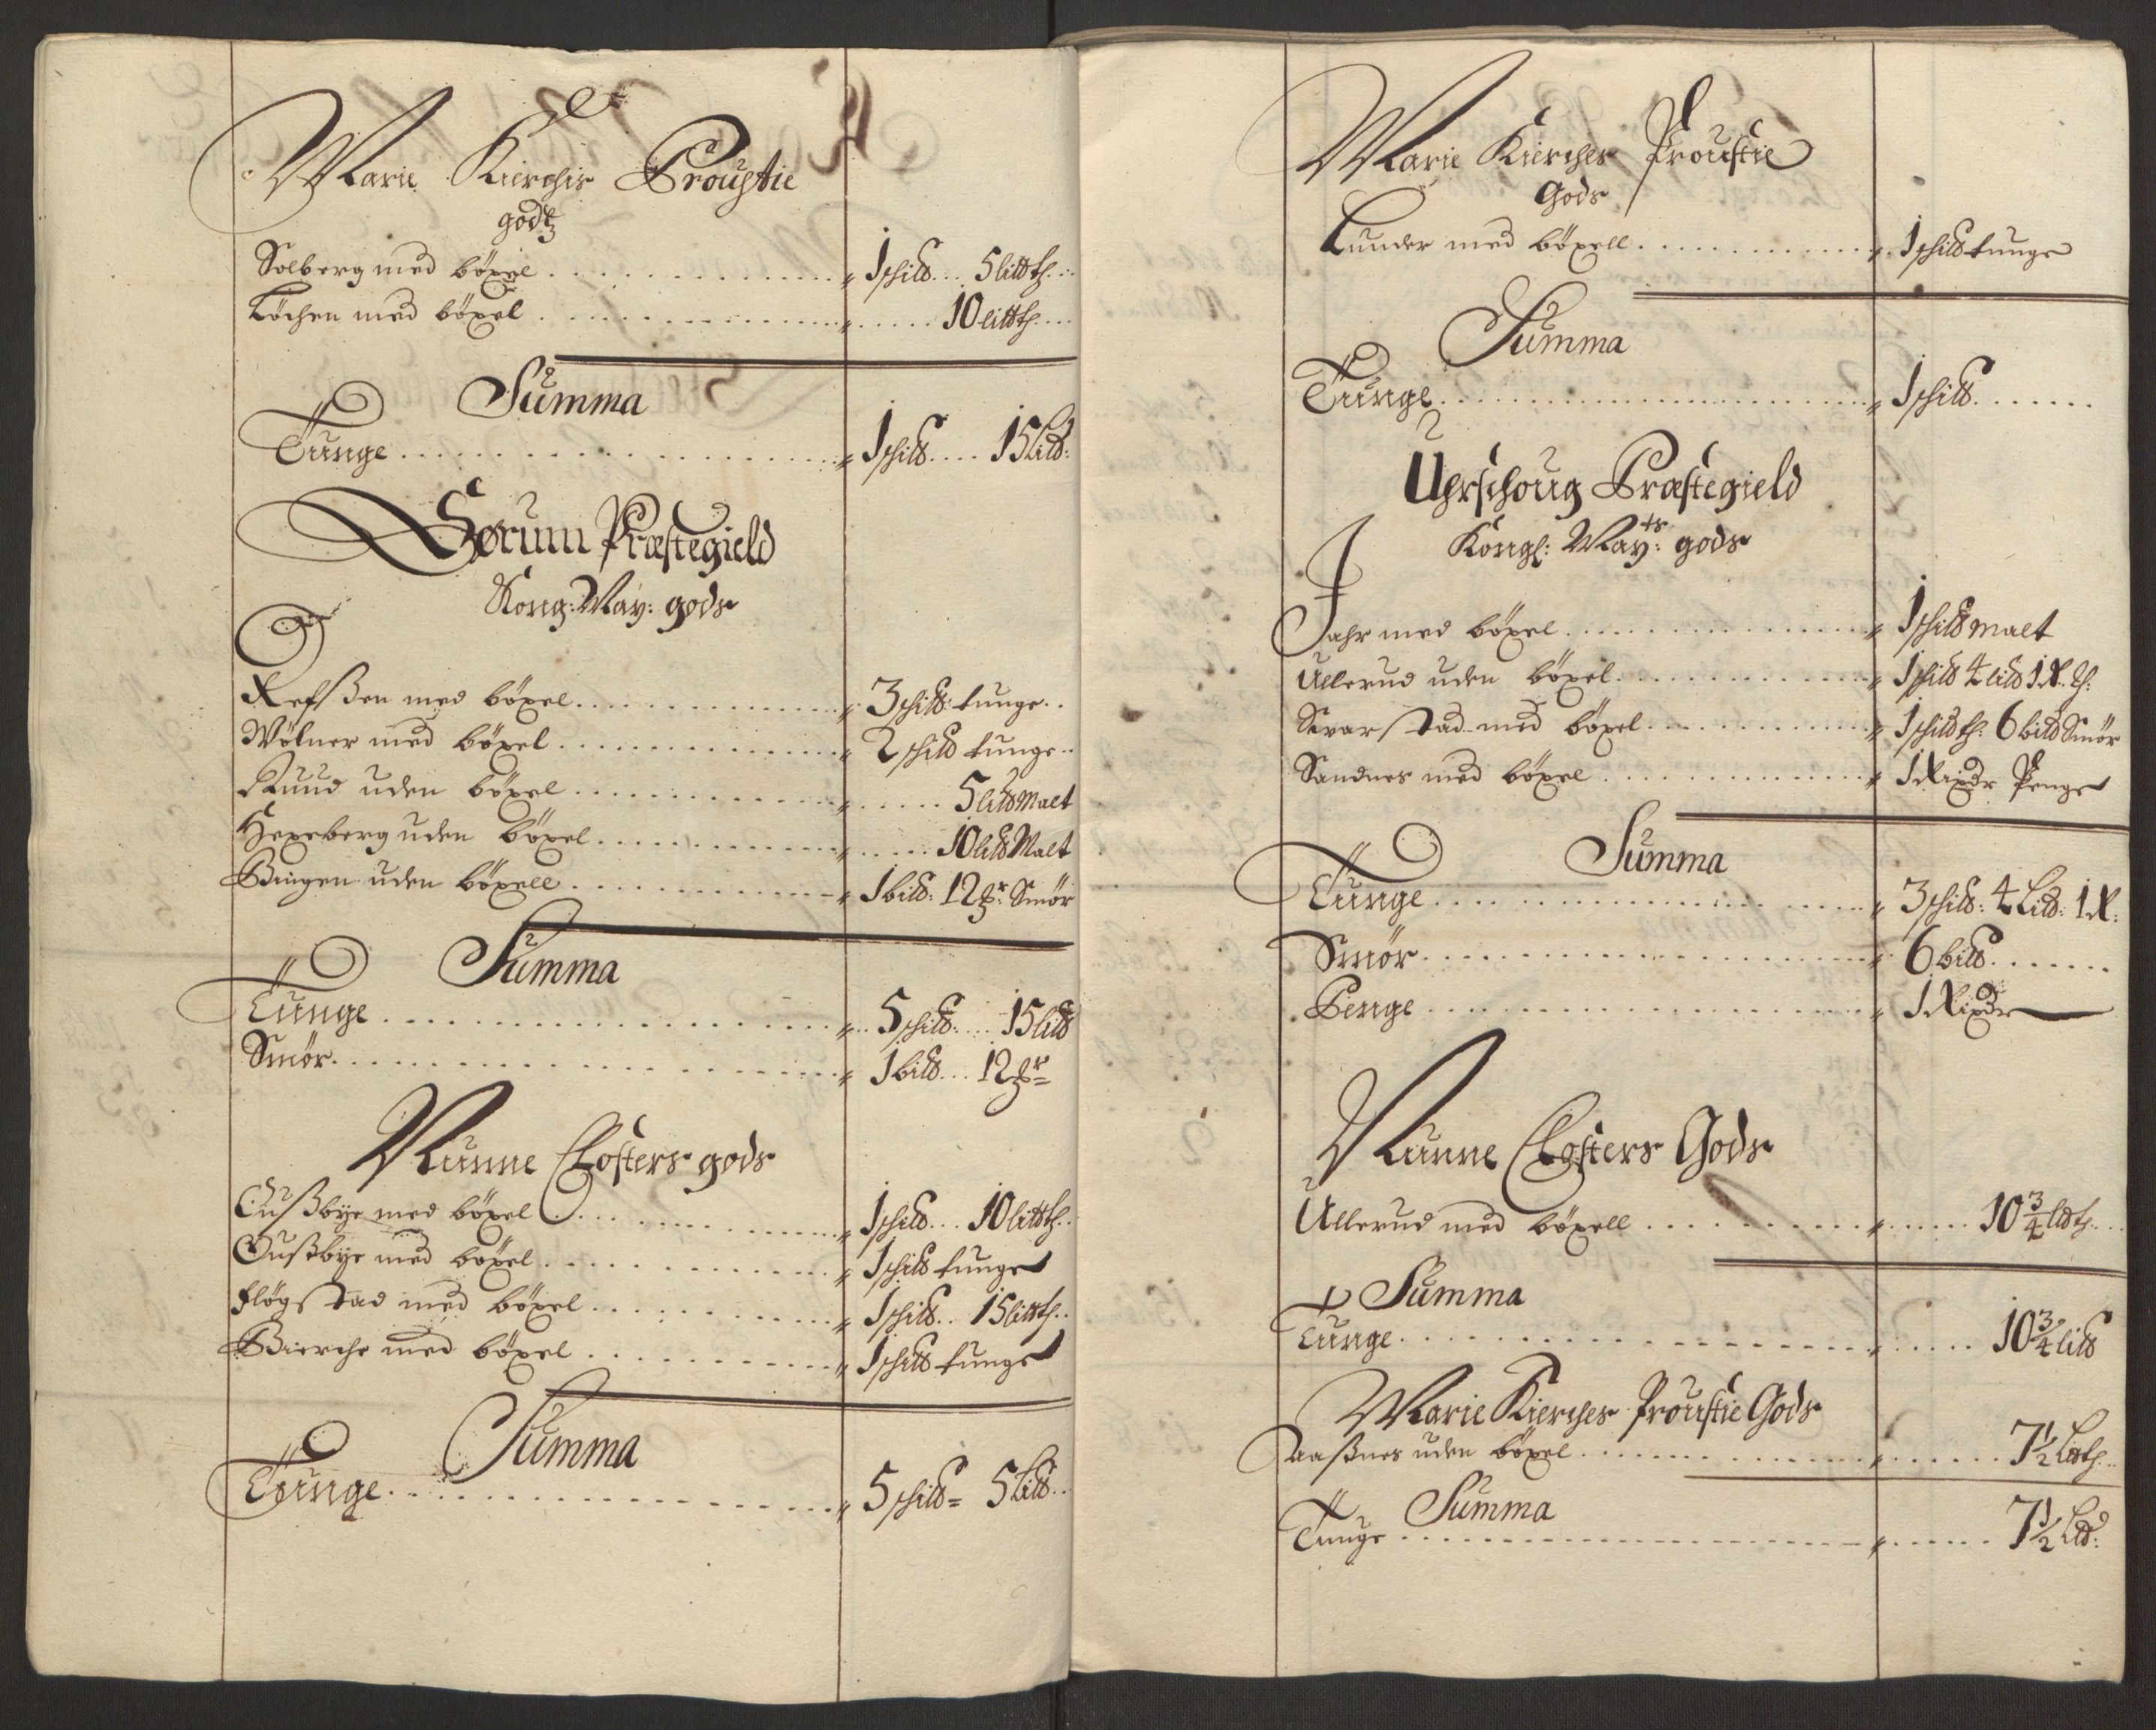 Marie Kierchis Proustie
godtz
Solberg med böxel . . . . . . . . . . . . " 1 schild . . . 5 littth . .
Löchen med böxel . . . . . . . . . . . . " . . . . . 10 littth . . .
Summa
Tunge . . . . . . . . . . . . . . . . " 1 schild . . . . 15 lild:
Sørum Præstegield
Kong: May: gods
Refsßen med böxel . . . . . . . . . . " 3 schild: tunge . .
Wölner med böxel . . . . . . . . . . . " 2 schild tunge . .
Ruud uden böxel . . . . . . . . . . . " . . . . . 5 lild Malt
Hexeberg uden böxel . . . . . . . . . . " . . . . . 10 lild Malt
Bingen uden böxell . . . . . . . . . . " 1 bild: 12 Smör
Summa
Tunge . . . . . . . . . . . . . . . . " 5 schild: . . . 15 lild
Smör . . . . . . . . . . . . . . . . . " 1 bild . . . 12
Nunne Closters gods
Cußbye med böxel . . . . . . . . . . . " 1 schild . . . 10 littth . .
Oußbye med böxel . . . . . . . . . . . " 1 schild tunge
Fløgstad med böxel . . . . . . . . . . " 1 schild . . 15 littth . .
Bierche med böxel . . . . . . . . . . . " 1 schild tunge
Summa
Tunge . . . . . . . . . . . . . . . . " 5 schild = 5 lild . .
Marie Kierches Proustie
Gods
Lunder med böxell . . . . . . . . . . " 1 schild tunge
Summa
Tunge . . . . . . . . . . . . . . . . " 1 schild . . . . . .
Uhrschoug Præstegield
Kongl: May:ts gods
Jahr med böxel . . . . . . . . . . . . " 1 schild malt
Ullerud uden böxel . . . . . . . . . . " 1 schild 4 lild 1 R. th:
Svarstad med böxel . . . . . . . . . . " 1 schild th: 6 bild Smör
Sandnes med böxel . . . . . . . . . . . " 1 Rixdr Penge
Summa
Tunge . . . . . . . . . . . . . . . . " 3 schild: 4 Lild: 1 R:
Smör . . . . . . . . . . . . . . . . . " 6 bild . . . . . .
Penge . . . . . . . . . . . . . . . . " 1 Rixdr
Nunne Closters Gods
Ullerud med böxell . . . . . . . . . . " . . . . . 10 3/4 ldth . .
Summa
Tunge . . . . . . . . . . . . . . . . " . . . . . 10 3/4 lild
Marie Kierches Proustie Gods
Aaßnes uden böxel . . . . . . . . . . . " . . . . . . 7 1/2 Ldth . .
Summa
Tunge . . . . . . . . . . . . . . . . " . . . . . . 7 1/2 Ld: